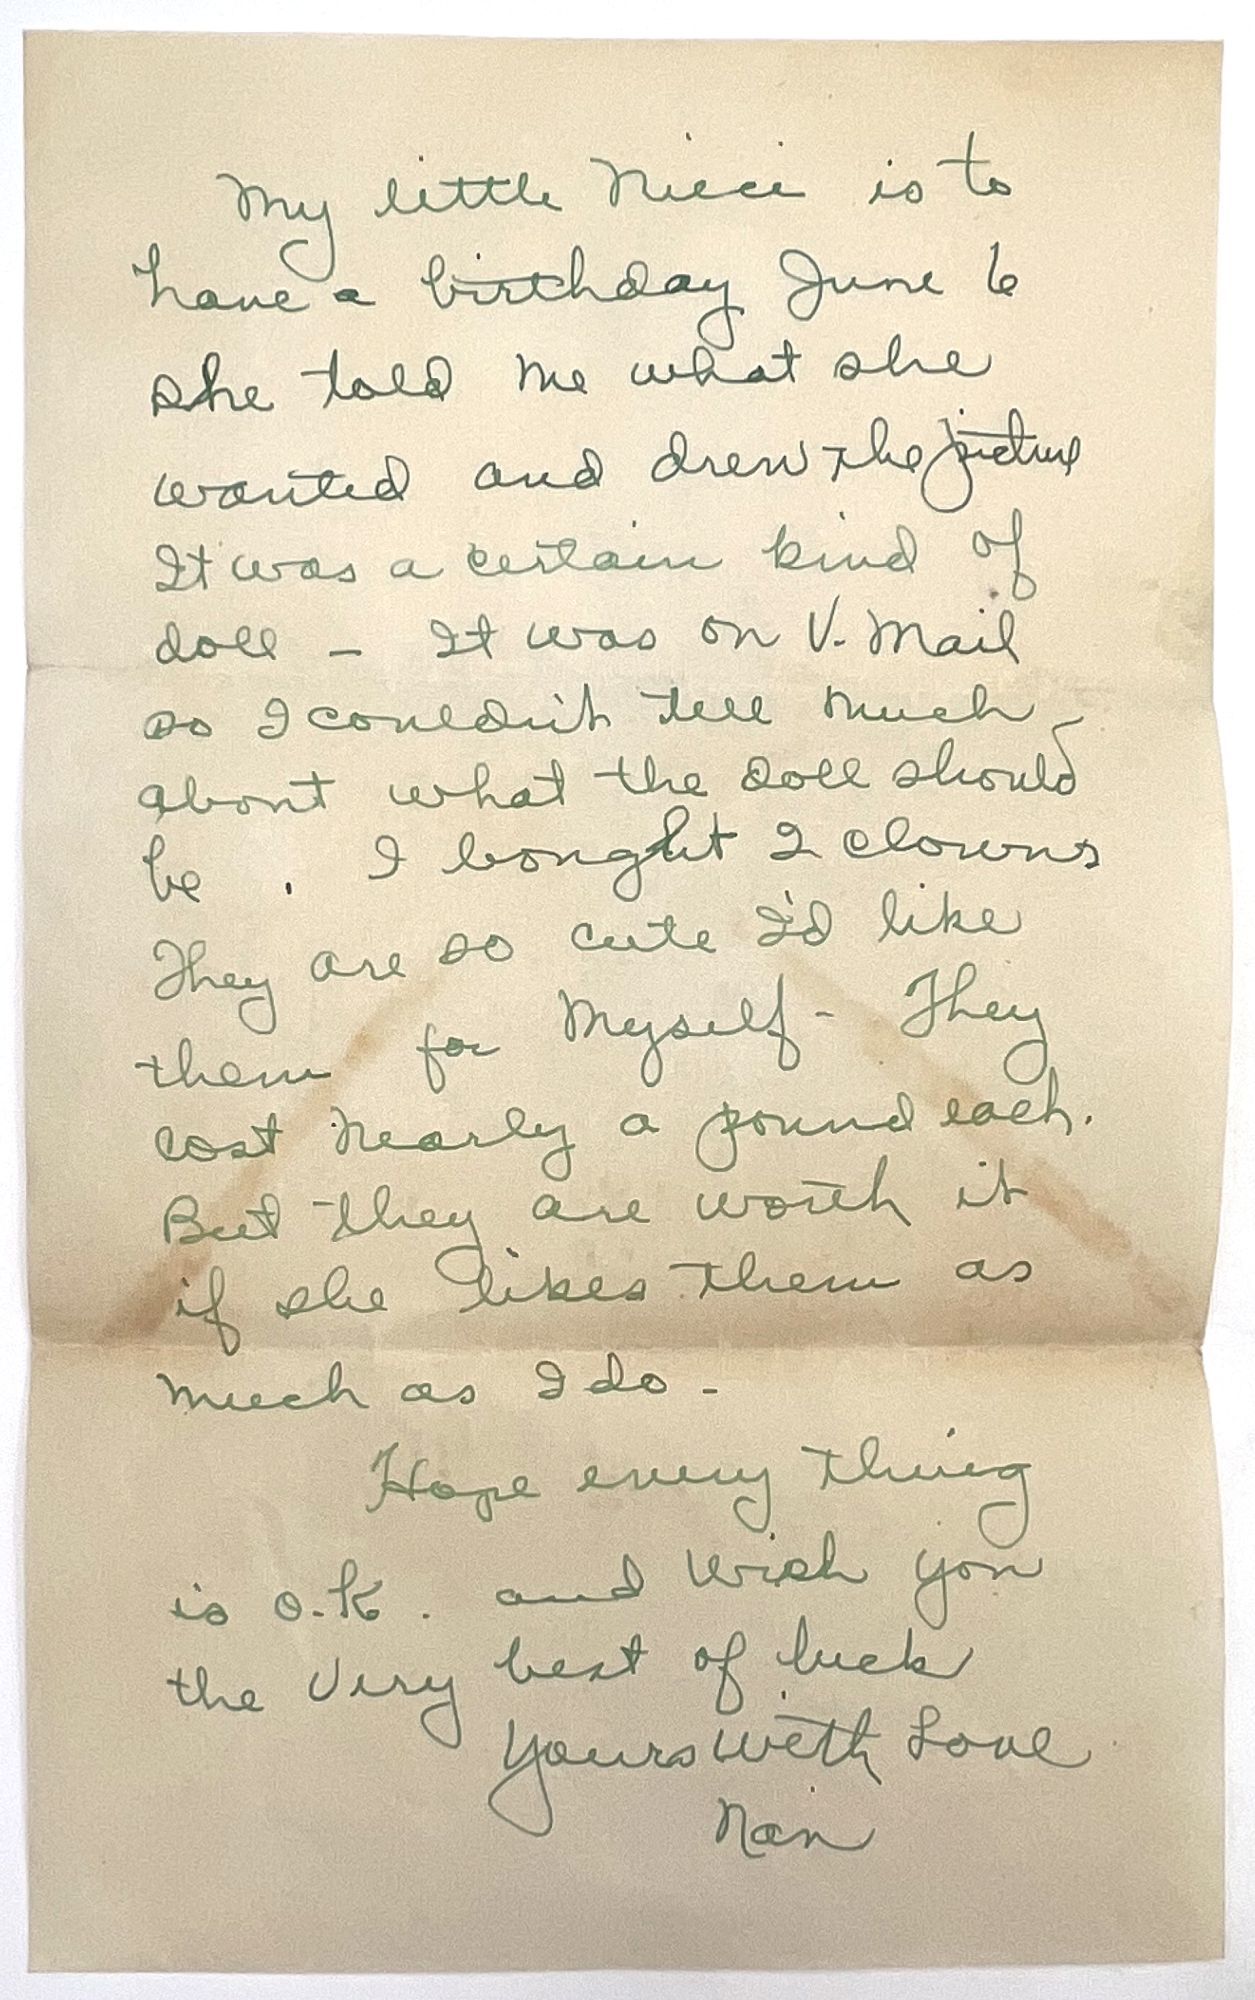 My little Niece is to
have a birthday June 6
she told me what she
wanted and drew the picture
It was a certain kind of
doll - It was on V. Mail
so I couldn't tell much
about what the doll should
be . I bought 2 clowns
They are so cute I'd like
them for Myself - They
cost nearly a pound each.
But they are worth it
if she likes them as
much as I do -
Hope every thing
is O.K. and wish you
the very best of luck
Yours with Love
Nan